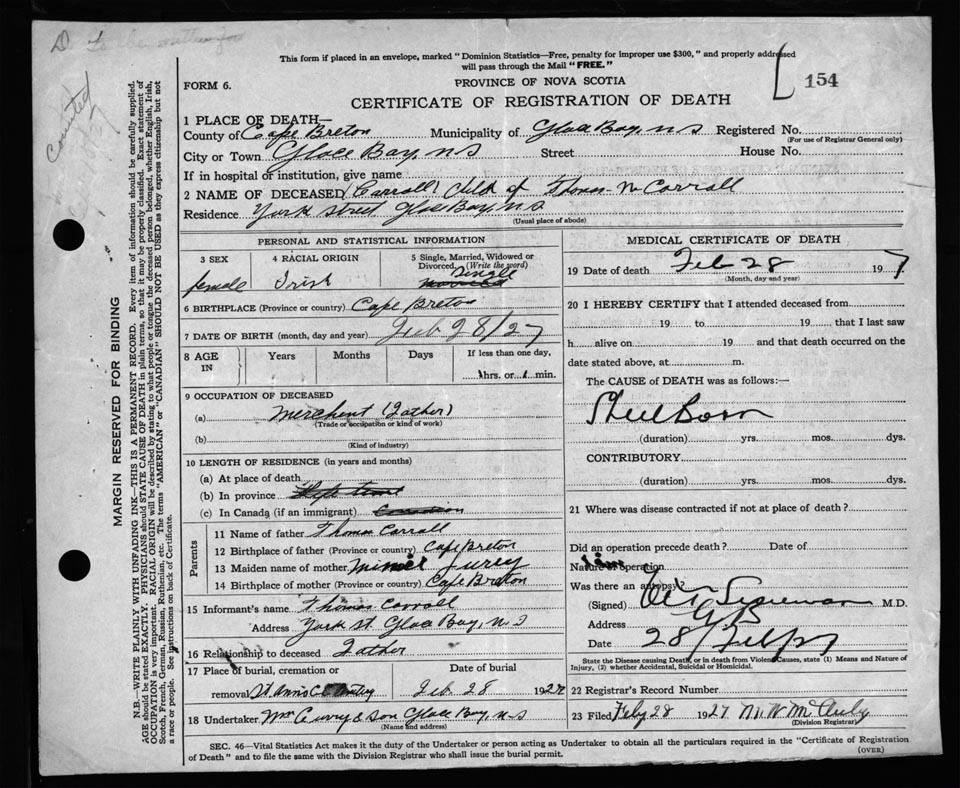 This form if placed in an envelope, marked "Dominion Statistics—Free, penalty for improper use $300," and properly addressed
will pass through the Mail "FREE."
154
FORM 6.
PROVINCE OF NOVA SCOTIA
CERTIFICATE OF REGISTRATION OF DEATH
1 PLACE OF DEATH—
County of Cape Breton Municipality of Glace Bay, N S Registered No.
(For use of Registrar General only)
City or Town Glace Bay, N S Street House No.
If in hospital or institution, give name
2 NAME OF DECEASED (Carroll) child of Thomas N Carroll
Residence York Street Glace Bay, N S
(Usual place of abode)
PERSONAL AND STATISTICAL INFORMATION
3 SEX female
4 RACIAL ORIGIN Irish
5 Single, Married, Widowed or Divorced, (Write the word) Single
6 BIRTHPLACE (Province or country) Cape Breton
7 DATE OF BIRTH (month, day and year) Feb 28/27
8 AGE IN Years Months Days If less than one day, hrs. or min.
9 OCCUPATION OF DECEASED
(a) Merchant (Father)
(Trade or occupation or kind of work)
(b)
(Kind of industry)
10 LENGTH OF RESIDENCE (in years and months)
(a) At place of death
(b) In province
(c) In Canada (if an immigrant)
Parents
11 Name of father Thomas Carroll
12 Birthplace of father (Province or country) Cape Breton
13 Maiden name of mother
14 Birthplace of mother (Province or country) Cape Breton
15 Informant's name Thomas Carroll
Address York St. Glace Bay, N S
16 Relationship to deceased Father
17 Place of burial, cremation or Date of burial
removal St Anns Feb 28 1927
18 Undertaker Wm Curry & Son Glace Bay, N S
(Name and address)
MEDICAL CERTIFICATE OF DEATH
19 Date of death Feb 28 19 7
(Month, day and year)
20 I HEREBY CERTIFY that I attended deceased from
19 to 19 that I last saw
h alive on 19 and that death occurred on the
date stated above, at m.
The CAUSE OF DEATH was as follows:—
Still Born
(duration) yrs. mos. dys.
CONTRIBUTORY
(duration) yrs. mos. dys.
21 Where was disease contracted if not at place of death?
Did an operation precede death? Date of
Nature of operation
Was there an autopsy?
(Signed) M.D.
Address G B
Date 28/Feb/27
State the Disease causing Death, or in death from Violent Causes, state (1) Means and Nature of
Injury, (2) whether Accidental, Suicidal or Homicidal.
22 Registrar's Record Number
23 Filed Feby 28 1927
(Division Registrar)
SEC. 46—Vital Statistics Act makes it the duty of the Undertaker or person acting as Undertaker to obtain all the particulars required in the "Certificate of Registration
of Death" and to file the same with the Division Registrar who shall issue the burial permit.
(OVER)
MARGIN RESERVED FOR BINDING
N.B.—WRITE PLAINLY WITH UNFADING INK—THIS IS A PERMANENT RECORD. Every item of information should be carefully supplied.
AGE should be stated EXACTLY. PHYSICIANS should STATE CAUSE OF DEATH in plain terms, so that it may be properly classified. Exact statement of
OCCUPATION is very important. RACIAL ORIGIN will be described by stating to what people or tongue the deceased person belonged, whether English, Irish,
Scotch, French, German, Russian, Ruthenian, etc. The terms "AMERICAN" or "CANADIAN" SHOULD NOT BE USED as they express citizenship but not
a race or people. See instructions on back of Certificate.